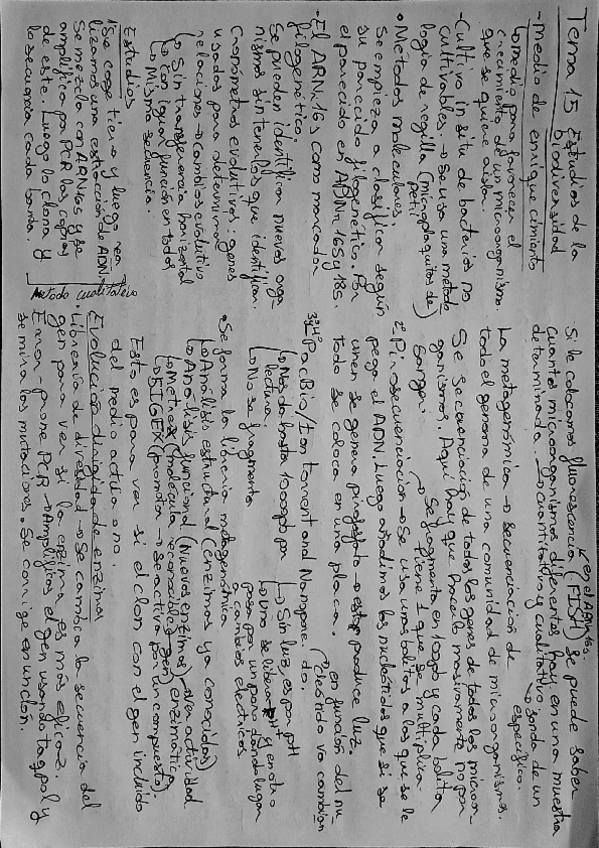 Tema 15 Estudios de la
biodiversidad
- Medio de enriquecimiento
↳ medio para favorecer el
crecimiento de un microorganismo
que se quiere aislar.
- Cultivo in situ de bacterias no
cultivables. → Se usa una metodo
logía de rejilla (microplaquitas de
petri)
• Métodos moleculares:
Se empieza a clasificar según
su parecido filogenético. En
el parecido en ARNr 16S y 18s.
- El ARN 16s como marcador
filogenético:
Se pueden identificar nuevos orga
nismos sin tenerlos que identificar.
Cronómetros evolutivos: genes
usados para determinar
relaciones → cambios evolutivo
↳ Sin transferencia horizontal
↳ Con igual función en todos
↳ Misma secuencia.
Estudios
1º Se coge tierra y luego rea
lizamos una extracción de ADN.
Se mezcla con ARN 16s y se
amplifica por PCR las copias
de este. Luego lo clona y
la secuencia cada banda.
Método cualitativo
en el ARN 16s.
Si le colocamos fluorescencia (FISH) se puede saber
cuantos microorganismos diferentes hay en una muestra
determinada. → cuantitativo y cualitativo → sonda de un
específico.
La metagenómica → secuenciación de
todo el genoma de una comunidad de microorganismos.
Se secuenciación de todos los genes de todos los micror
ganismos. Aquí hay que hacerlo masivamente no por
Sanger. → Se fragmenta en 100pb y cada bolita
tiene 1 que se multiplica
2º Pirosecuenciación → Se usa unas bolitas a las que se le
pega el ADN. Luego añadimos los nucleótidos que si se
unen se genera pirofosfato → este produce luz.
todo se coloca en una placa.
en función del nu
cleótido va cambian
do.
3º y 4º PacBio/Ion torrent and Nanopore
↳ No da hasta 1000pb por
lectura
↳ No se fragmenta
↳ Sin luz, es por pH
↳ uno se libera pH y el otro
pasa por un poro dando lugar
a cambios electricos
• Se forma la librería metagenómica
↳ Análisis estructural (enzimas ya conocidas)
↳ Análisis funcional (Nuevas enzimas) → Ven actividad
enzimática
↳ SIGEX (promotor → se activa por un compuesto).
Esto es para ver si el clon con el gen incluido
del medio actúa o no.
Evolución dirigida de enzimas
• Librería de diversidad → Se cambia la secuencia del
gen para ver si la enzima es más eficaz.
Error-prone PCR → Amplificas el gen usando taq poly
se mira las mutaciones. Se corrige en unión.